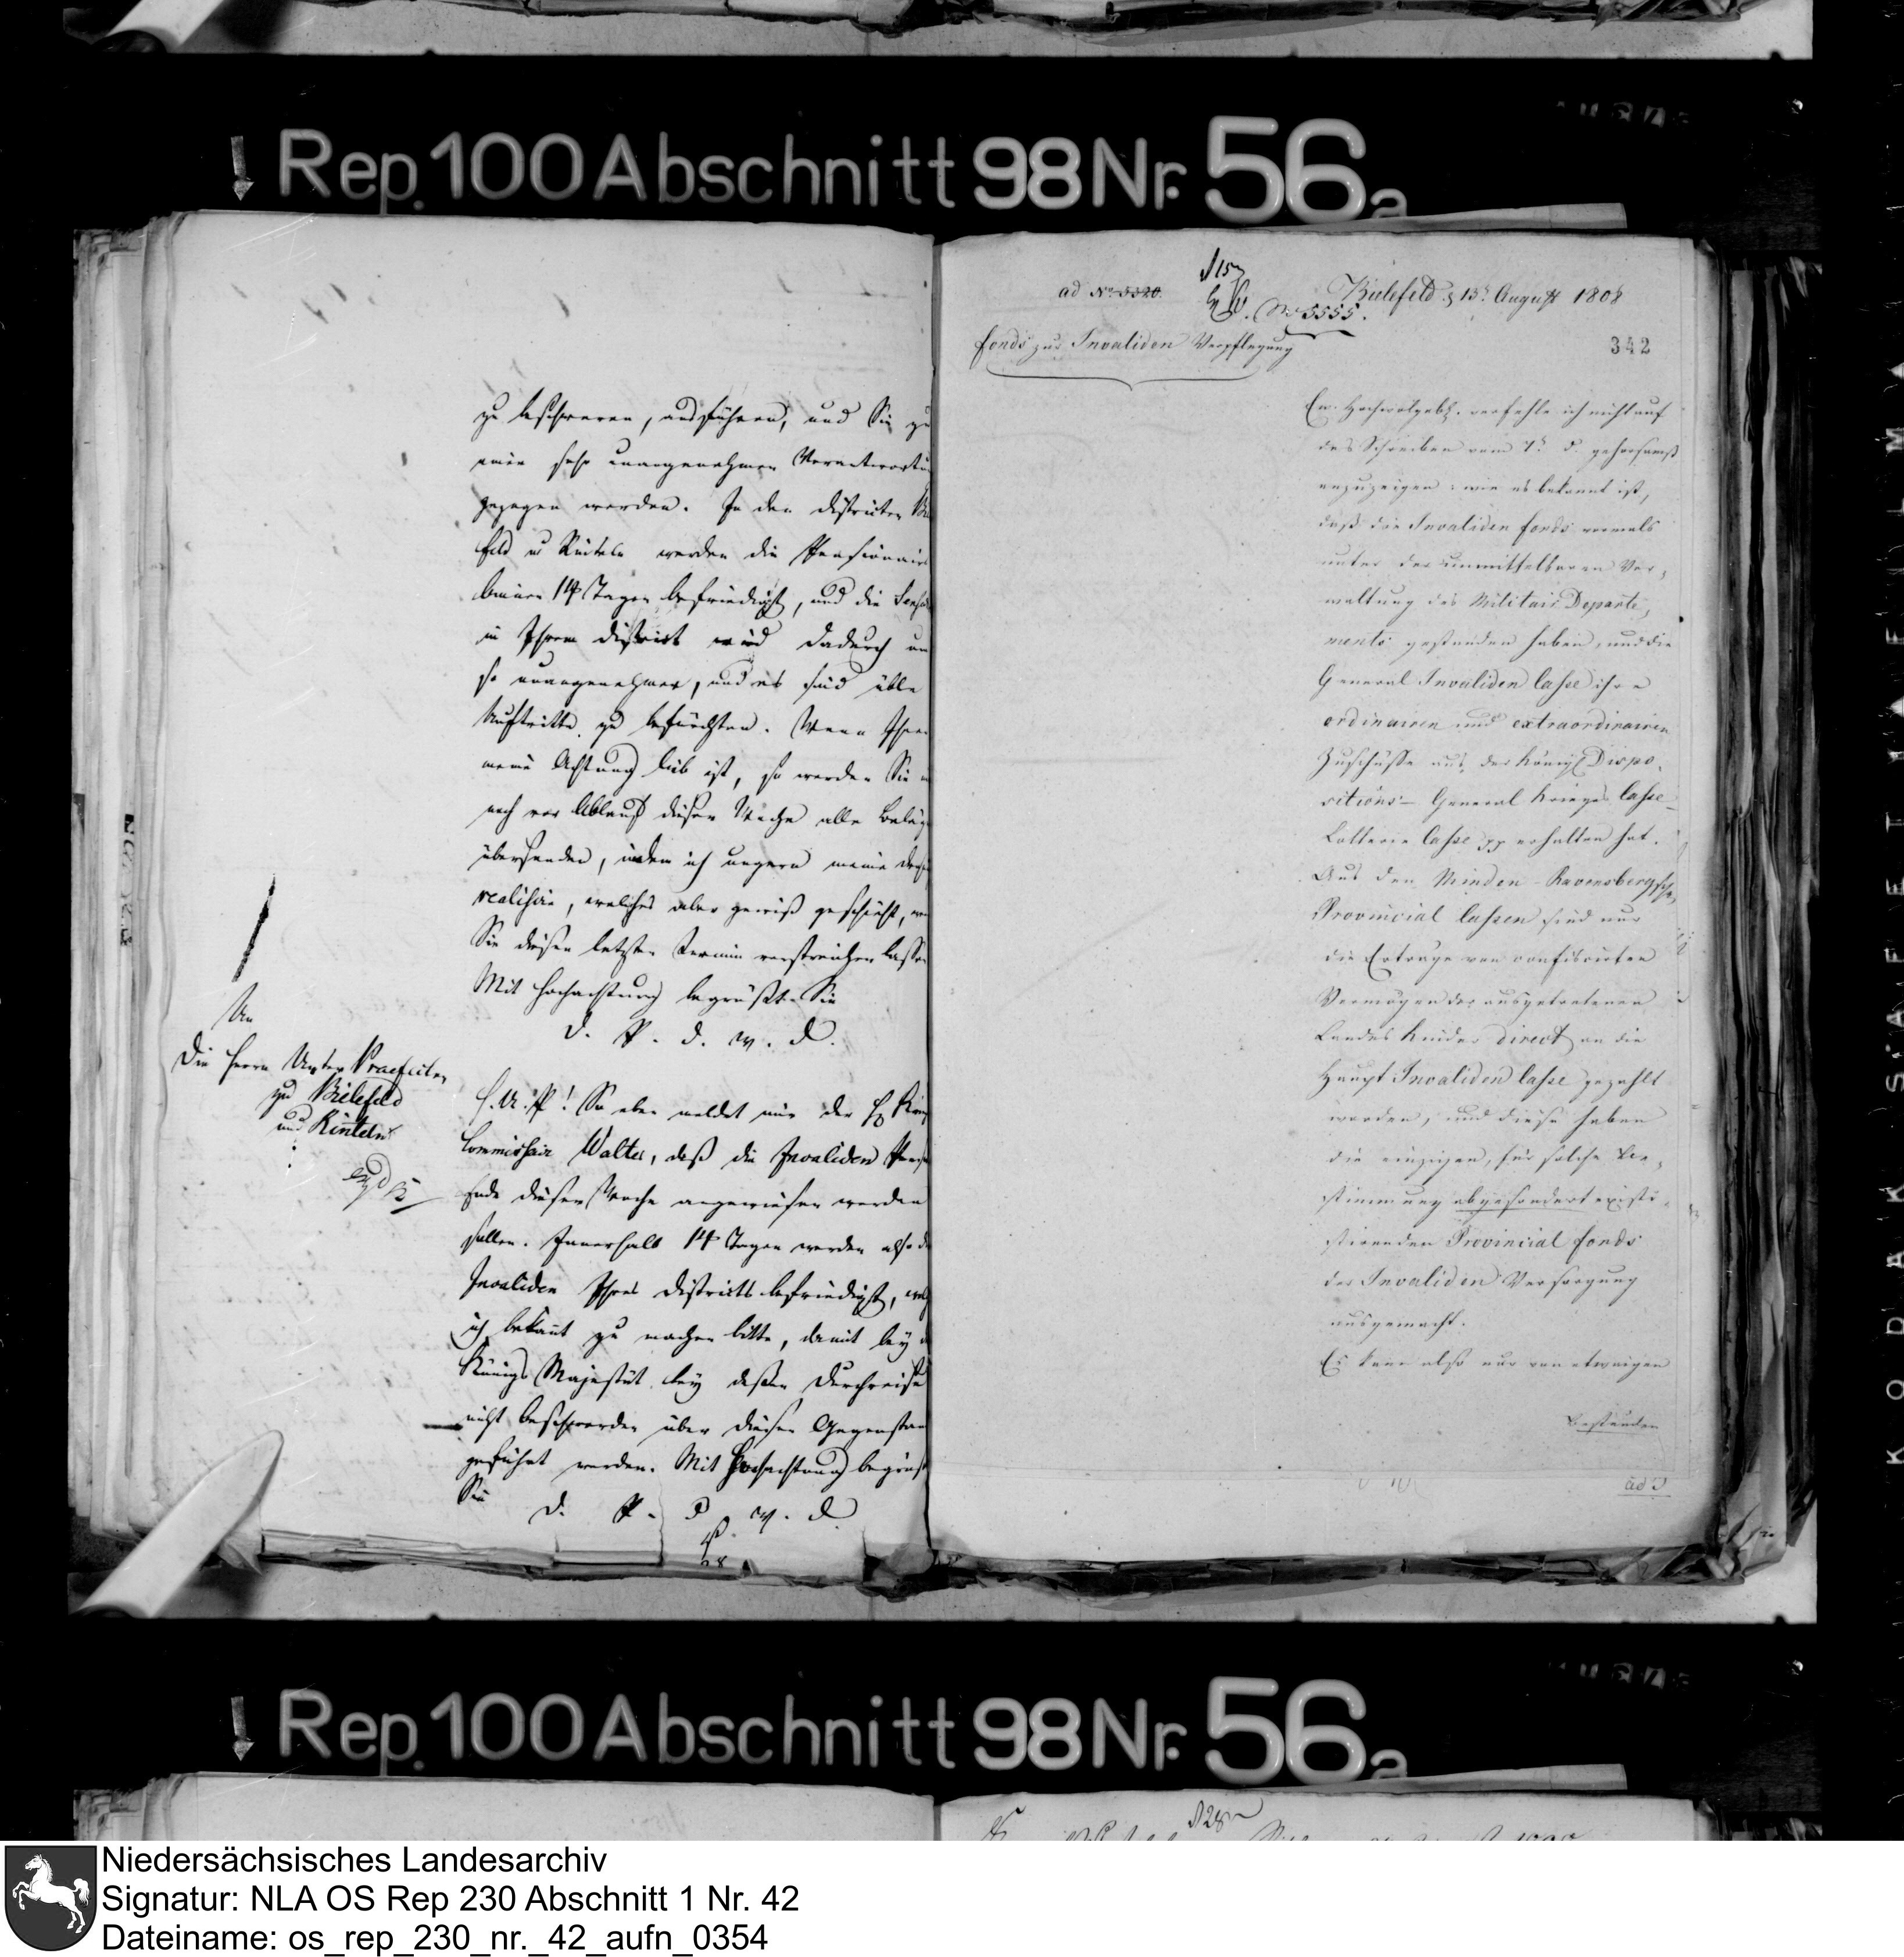 Rep. 100 Abschnitt 98 Nr. 56a
zu beschweren, ausführen, und Sie zu
einer sehr unangenehmen Verantwortu
gezogen werden. In den Districten Bi
feld u Rinteln werden die Pensionair
binnen 14 Tagen befriedigt, und die
in Ihrem District wird dadurch um
so unangenehmer, und es sind üble
Auftritte zu befürchten. Wenn Ihnen
meine Achtung lieb ist, so werden Sie
noch vor Ablauf dieser Woche alle Beläge
übersenden, indem ich ungern meine
realisire, welches aber gewiß geschieht, wenn
Sie diesen letzten Termin verstreichen lassen
Mit Hochachtung begrüßt Sie
d. P. d. W. D.
An
die Herrn Unter Praefecten
zu Bielefeld
und Rinteln
H. U. P! So eben meldet mir der H
Commissair Walter, daß die Invaliden
Ende dieser Woche angewiesen werden
sollen. Innerhalb 14 Tagen werden also d
Invaliden Ihres Districts befriedigt, welch
ich bekannt zu machen bitte, damit bey d
Königs Majestät bey deßen Durchreise
nicht Beschwerden über diesen Gegenstan
geführt werden. Mit Hochachtung begrüßt
Sie d. P. d. W. D.
ad No 5320.
No 5555.
Bielefeld d 13t August 1808
342
Fonds zur Invaliden Verpflegung
Ew. Hochwolgeb. verfehle ich nicht auf
das Schreiben vom 7t d. gehorsamst
anzuzeigen: wie es bekannt ist,
daß die Invaliden Fonds vormals
unter der unmittelbaren Ver,
waltung des Militair Departe,
ments gestanden haben, und die
General Invaliden Casse ihre
ordinairen und extraordinairen
Zuschüsse aus der Königl Dispo,
sitions- General Krieges Casse-
Lotterie Casse pp erhalten hat.
Aus den Minden-Ravensbergschen
Provincial Cassen sind nur
die Ertraege von confiscirten
Vermögen der ausgetretenen
Landes Kinder direct an die
Haupt Invaliden Casse gezahlt
worden, und diese haben
die einzigen, für solche Be,
stimmung abgesondert exist
stirenden Provincial Fonds
der Invaliden Versorgung
ausgemacht.
Es kann also nur von etwaigen
Bestanden
Rep. 100 Abschnitt 98 Nr. 56a
Niedersächsisches Landesarchiv
Signatur: NLA OS Rep 230 Abschnitt 1 Nr. 42
Dateiname: os_rep_230_nr._42_aufn_0354